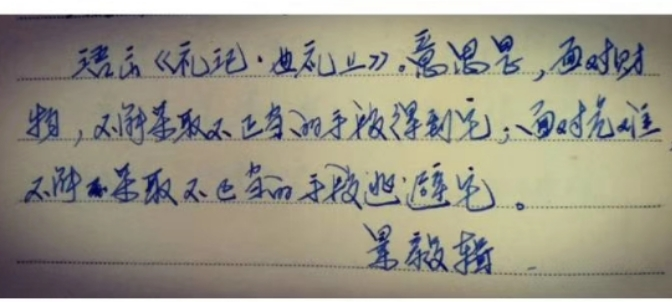 语出《礼记·曲礼上》。意思是，面对财
物，不能采取不正当的手段得到它；面对危难，
不能采取不正当的手段逃避它。
景毅辑